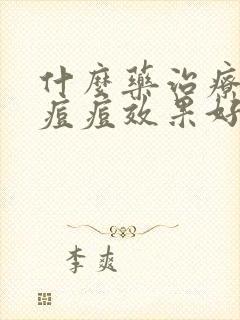 什麼藥治療
痘痘效果好
李爽